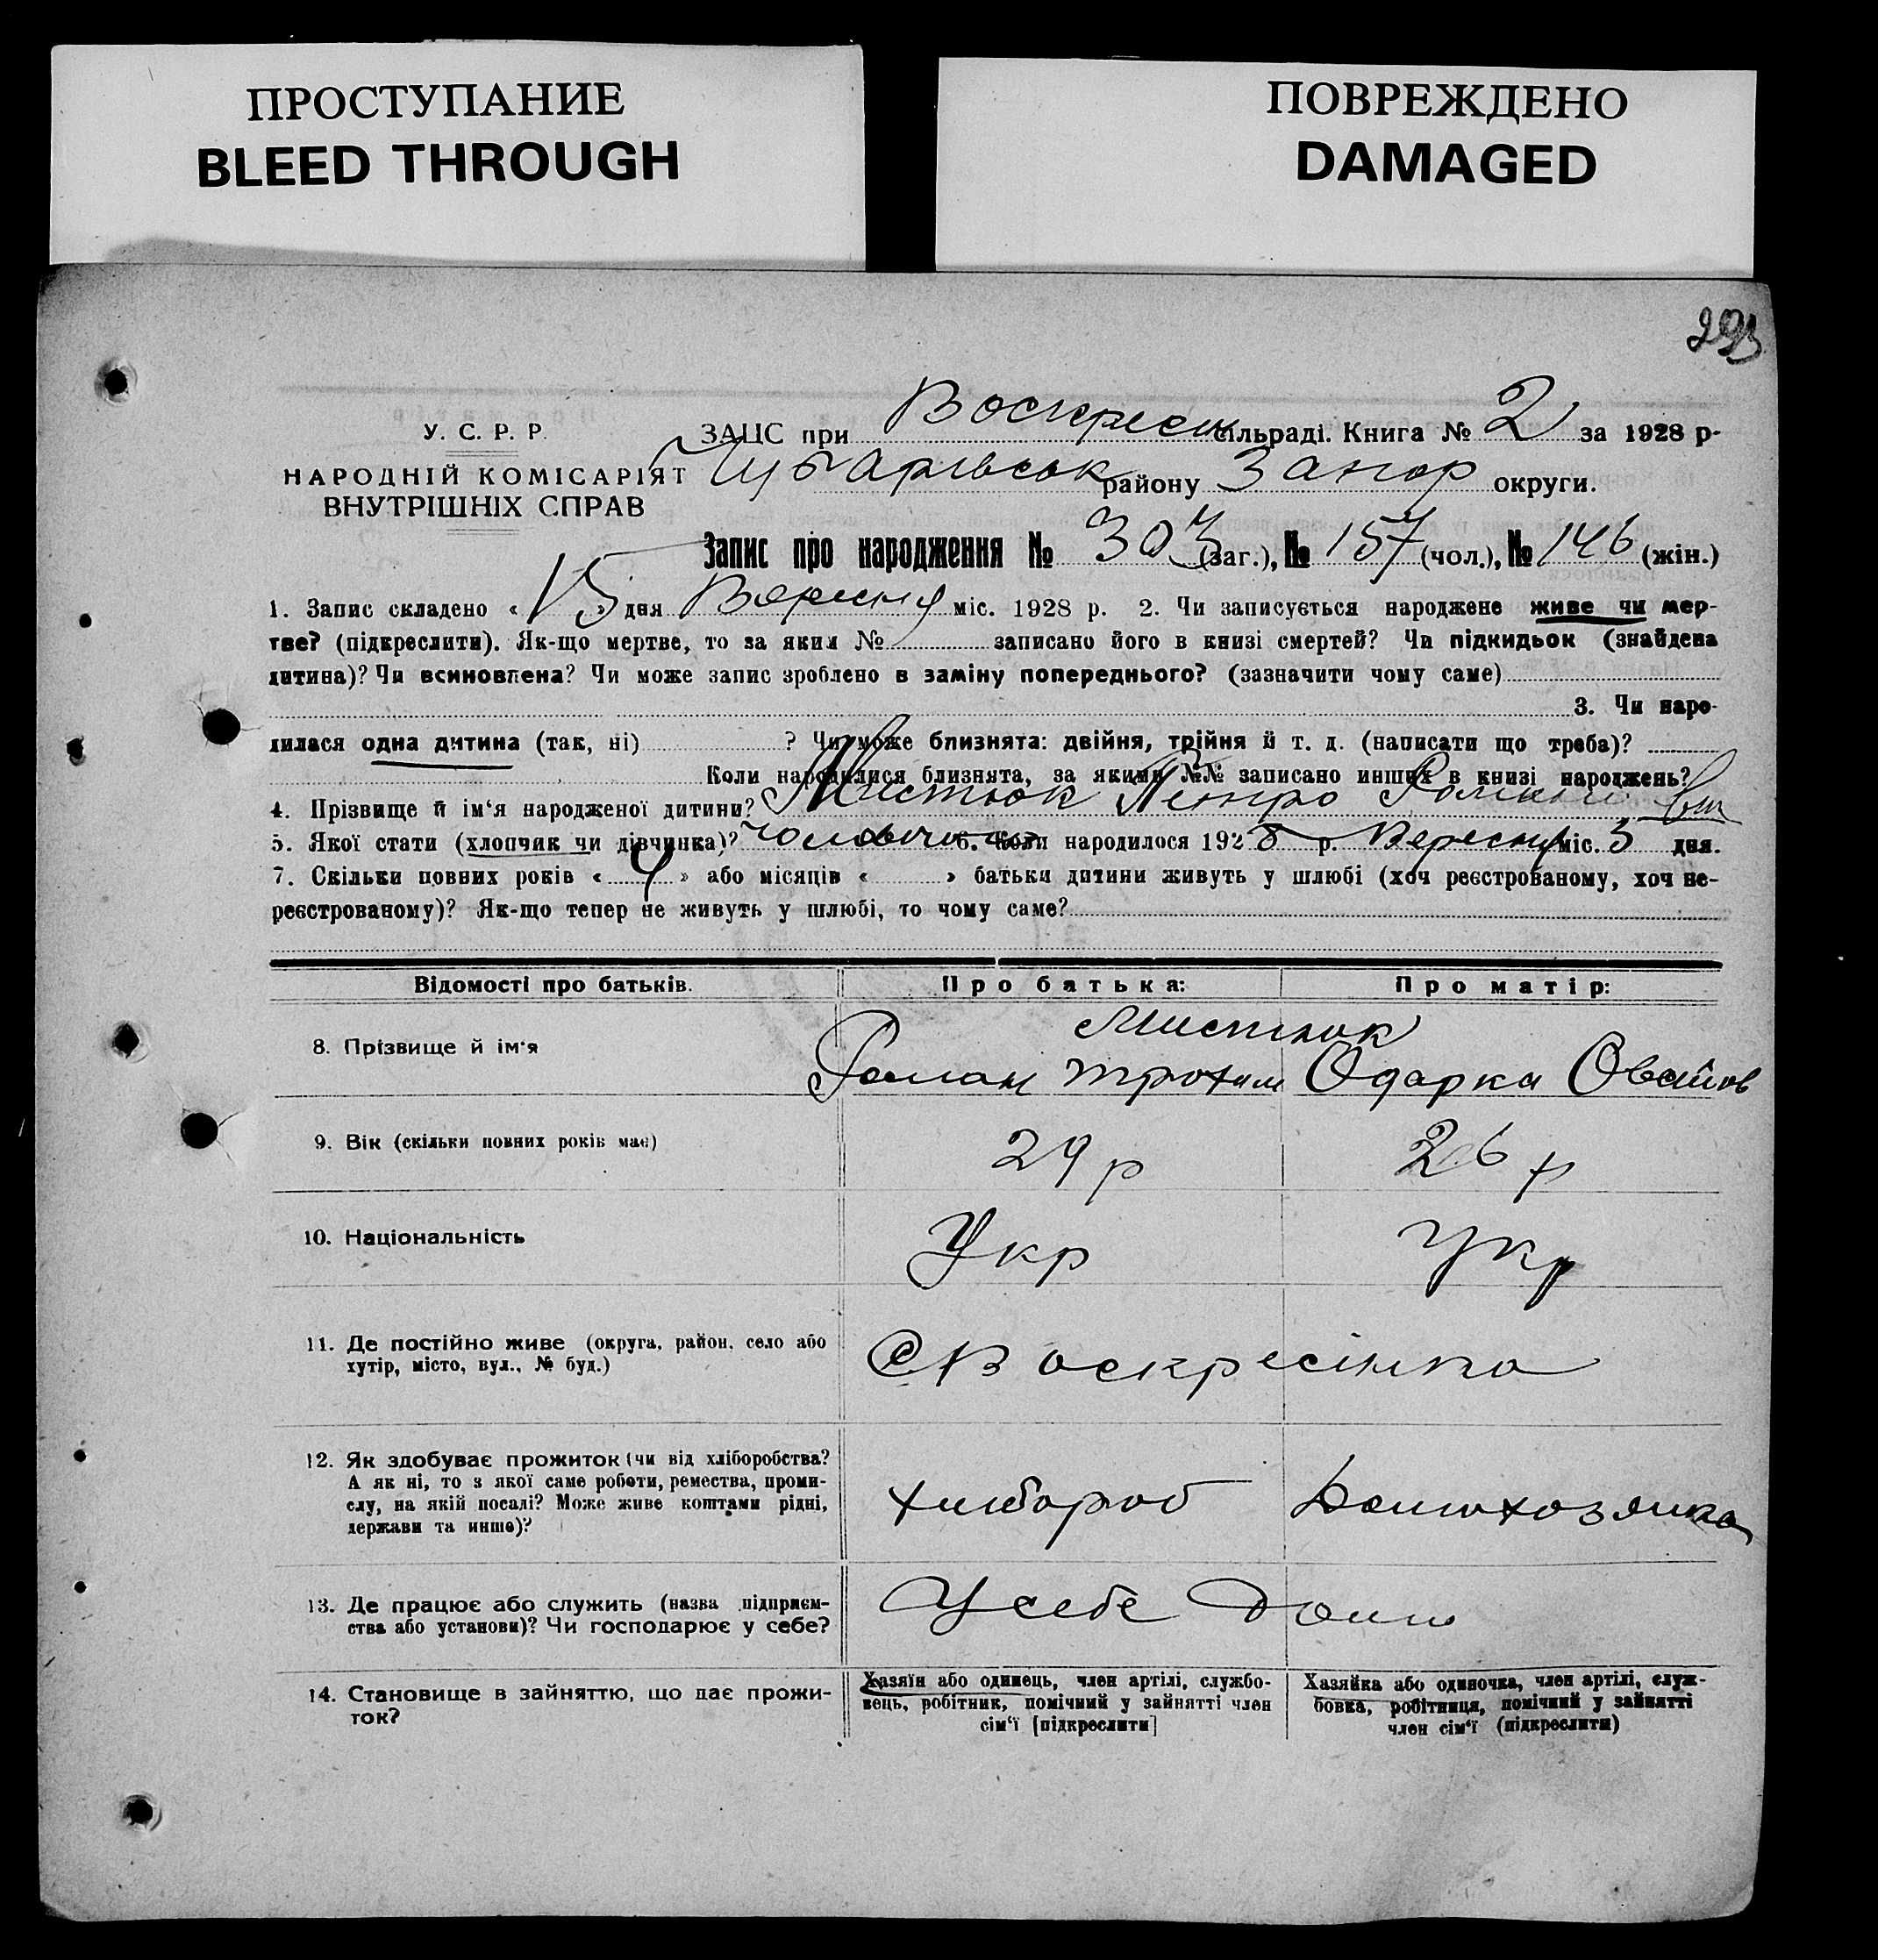 ПРОСТУПАНИЕ
BLEED THROUGH
ПОВРЕЖДЕНО
DAMAGED
293
У. С. Р. Р.
НАРОДНІЙ КОМІСАРІЯТ
ВНУТРІШНІХ СПРАВ
ЗАЦС при Воскресен сільраді. Книга № 2 за 1928 р.
Чубарівськ району Запор округи.
Запис про народження № 303 (заг.), № 157 (чол.), № 146 (жін.)
1. Запис складено « 15 » дня Вересня міс. 1928 р. 2. Чи записується народжене живе чи мер-
тве? (підкреслити). Як-що мертве, то за яким № записано його в книзі смертей? Чи підкидьок (знайдена
дитина)? Чи всиновлена? Чи може запис зроблено в заміну попереднього? (зазначити чому саме)
3. Чи наро-
дилася одна дитина (так, ні) ? Чи може близнята: двійня, трійня й т. д. (написати що треба)?
Коли народилися близнята, за якими №№ записано инших в книзі народжень?
4. Прізвище й ім‘я народженої дитини? Мистюк Петро Романович
5. Якої стати (хлопчик чи дівчинка)? чоловічо 6. Коли народилося 1928 р. Вересня міс. 5 дня.
7. Скільки повних років « 4 » або місяців « » батьки дитини живуть у шлюбі (хоч реєстрованому, хоч не-
реєстрованому)? Як-що тепер не живуть у шлюбі, то чому саме?
Відомості про батьків.
Про батька:
Про матір:
8. Прізвище й ім‘я
Мистюк
Роман Трохим
Одарка
9. Вік (скільки повних років має)
29 р
26 р
10. Національність
Укр
Укр
11. Де постійно живе (округа, район, село або
хутір, місто, вул., № буд.)
С Воскресінка
12. Як здобуває прожиток (чи від хліборобства?
А як ні, то з якої саме роботи, ремества, проми-
слу, на якій посаді? Може живе коштами рідні,
держави та инше)?
хлібороб
Домохозяйка
13. Де працює або служить (назва підприєм-
ства або установи)? Чи господарює у себе?
У себе дома
14. Становище в зайняттю, що дає прожи-
ток?
Хазяїн або одинець, член артілі, службо-
вець, робітник, помічний у зайнятті член
сім‘ї [підкреслити]
Хазяйка або одиночка, член артілі, служ-
бовка, робітниця, помічний у зайнятті
член сім‘ї (підкреслити)